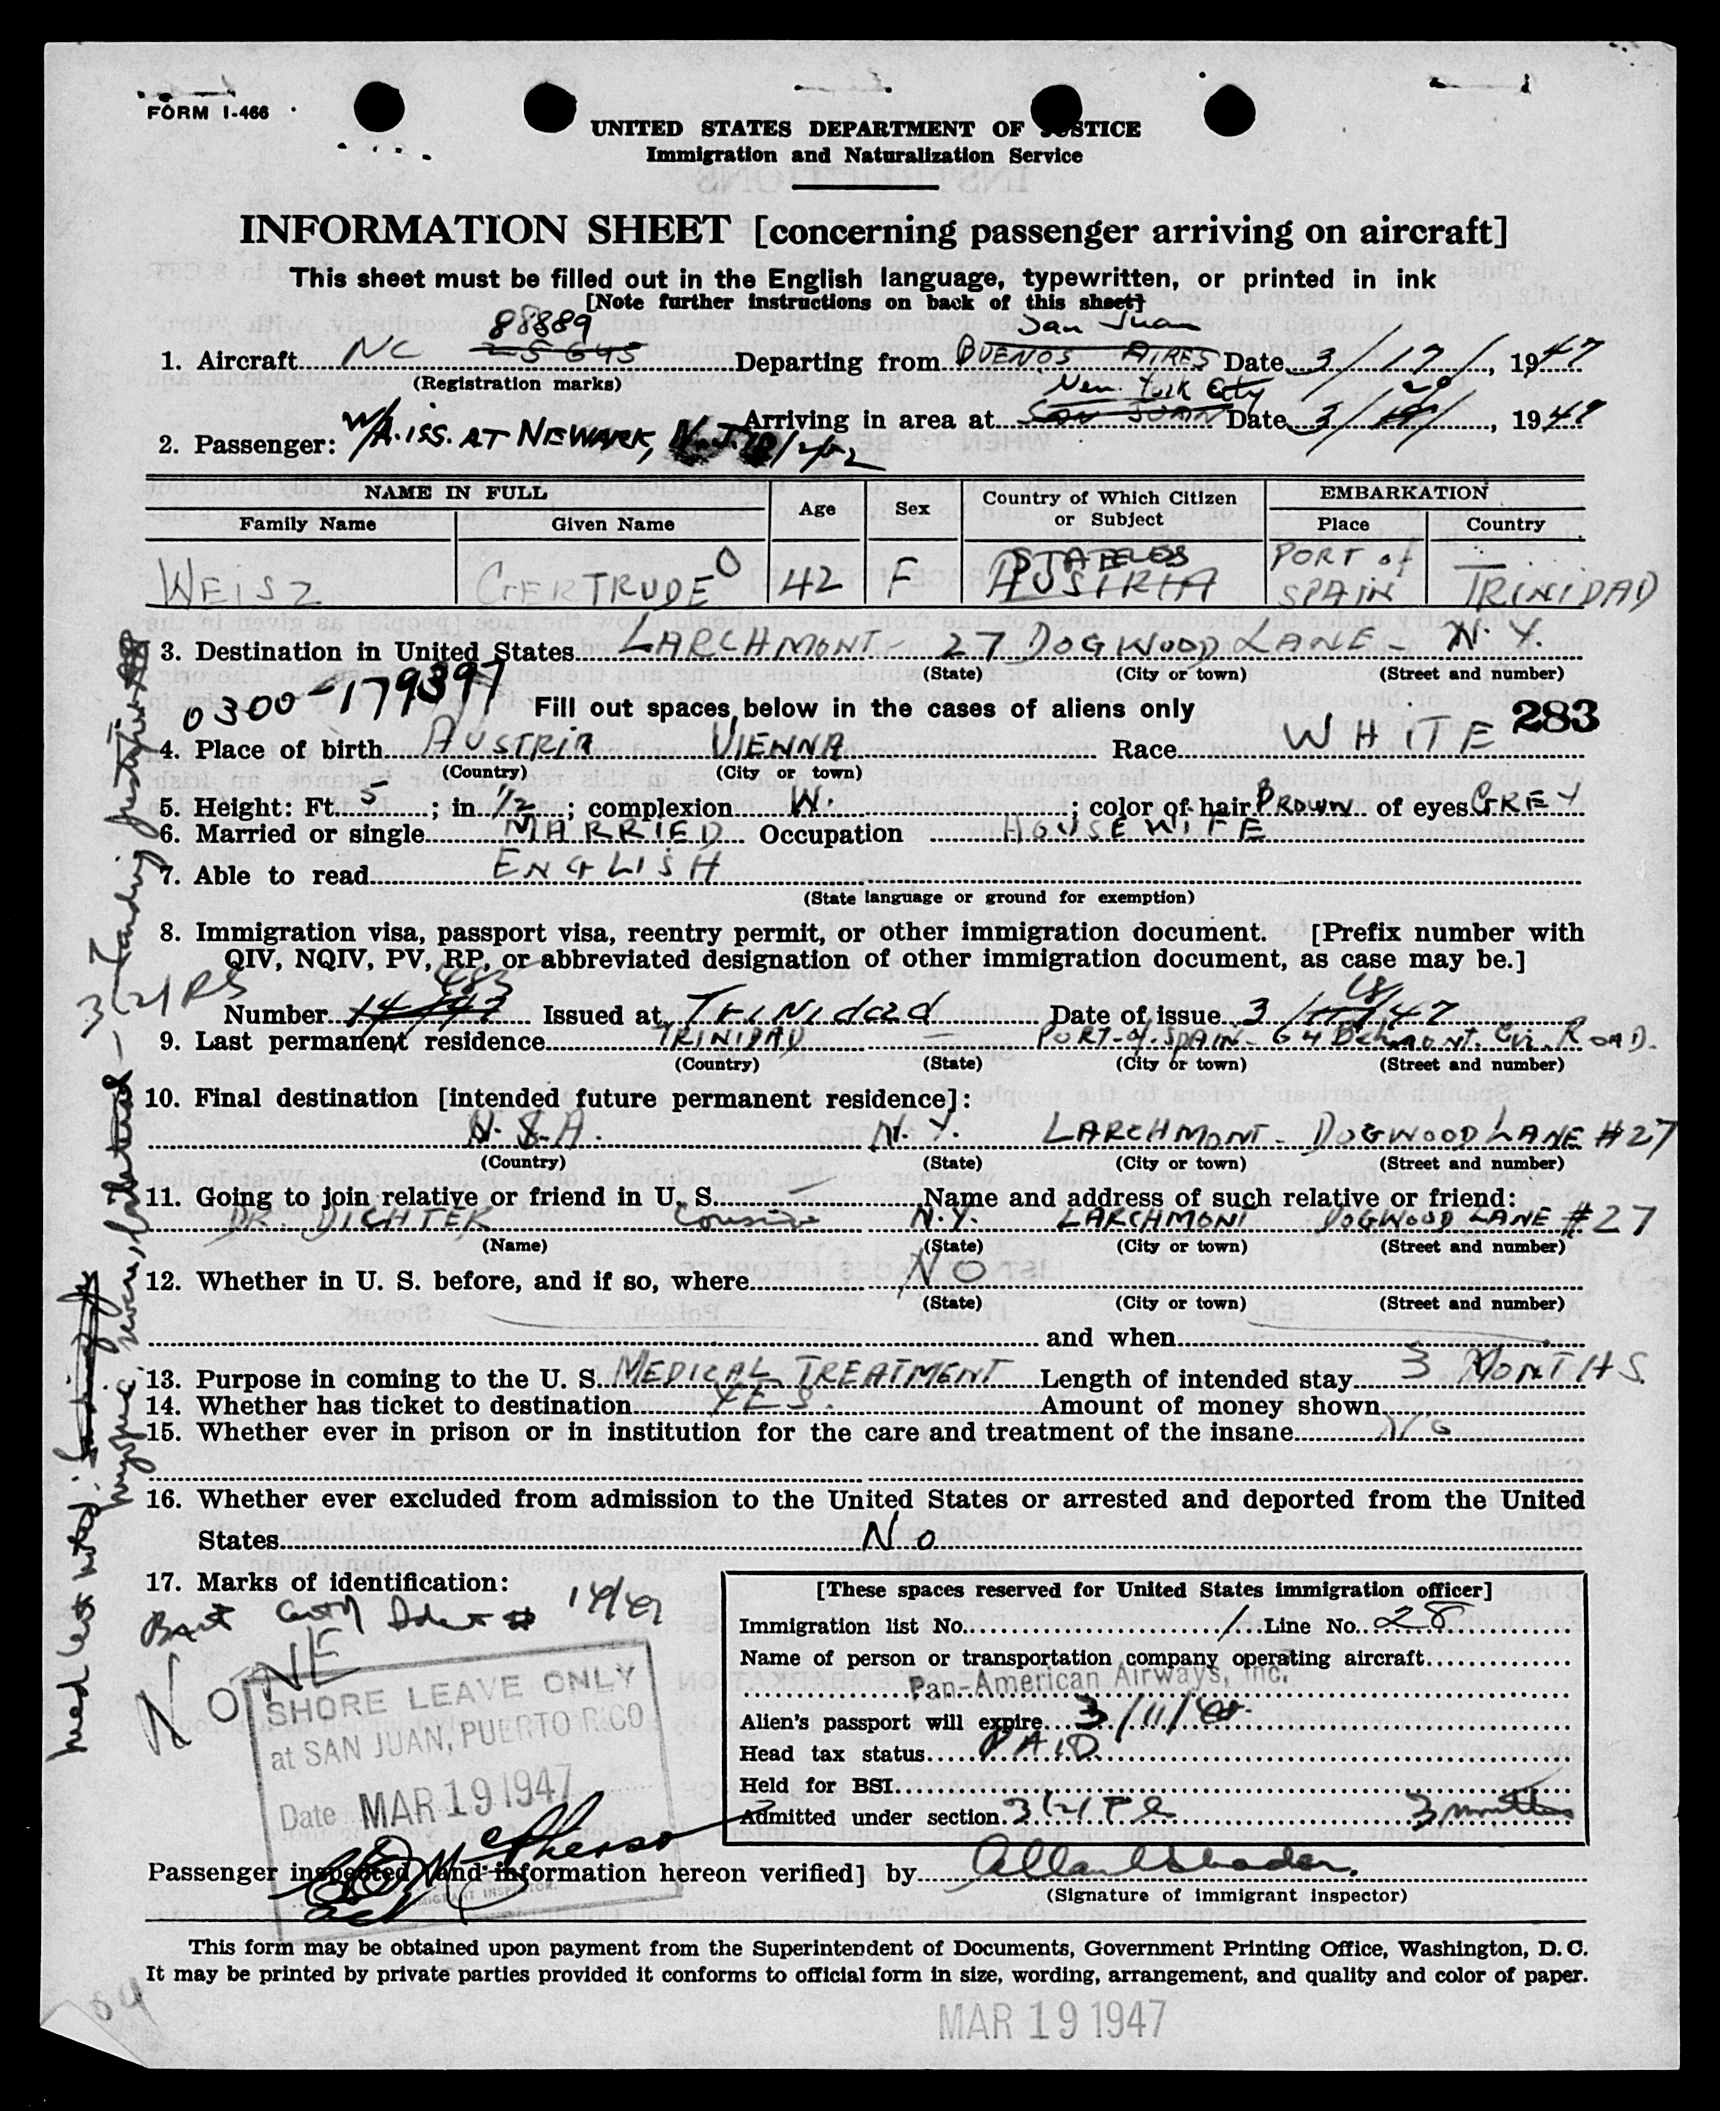 FORM I-466
UNITED STATES DEPARTMENT OF JUSTICE
Immigration and Naturalization Service
INFORMATION SHEET [concerning passenger arriving on aircraft]
This sheet must be filled out in the English language, typewritten, or printed in ink
[Note further instructions on back of this sheet]
88889 San Juan
1. Aircraft NC 25645 Departing from BUENOS AIRES Date 3/17/, 1947
(Registration marks)
New York City 20
Arriving in area at SAN JUAN Date 3/19/, 1947
2. Passenger: ISS. AT NEWARK, N.J.
NAME IN FULL Age Sex Country of Which Citizen or Subject EMBARKATION
Family Name Given Name Place Country
STATELESS PORT of
WEISZ GERTRUDE O 42 F AUSTRIA SPAIN TRINIDAD
3. Destination in United States LARCHMONT - 27 DOGWOOD LANE - N.Y.
(State) (City or town) (Street and number)
0300-179397 Fill out spaces below in the cases of aliens only 283
4. Place of birth AUSTRIA VIENNA Race WHITE
(Country) (City or town)
5. Height: Ft. 5; in. 1/2; complexion W.; color of hair BROWN of eyes GREY
6. Married or single MARRIED Occupation HOUSEWIFE
7. Able to read ENGLISH
(State language or ground for exemption)
8. Immigration visa, passport visa, reentry permit, or other immigration document. [Prefix number with
QIV, NQIV, PV, RP, or abbreviated designation of other immigration document, as case may be.]
483 18/
Number 14/47 Issued at Trinidad Date of issue 3/17/47
9. Last permanent residence TRINIDAD — PORT-of-SPAIN - 64 Belmont Cir. ROAD.
(Country) (State) (City or town) (Street and number)
10. Final destination [intended future permanent residence]:
U.S.A. N.Y. LARCHMONT - DOGWOOD LANE #27
(Country) (State) (City or town) (Street and number)
11. Going to join relative or friend in U. S. Name and address of such relative or friend:
DR. DICHTER Cousin N.Y. LARCHMONT DOGWOOD LANE #27
(Name) (State) (City or town) (Street and number)
12. Whether in U. S. before, and if so, where NO
(State) (City or town) (Street and number)
and when
13. Purpose in coming to the U. S. MEDICAL TREATMENT Length of intended stay 3 MONTHS.
14. Whether has ticket to destination YES. Amount of money shown
15. Whether ever in prison or in institution for the care and treatment of the insane No
16. Whether ever excluded from admission to the United States or arrested and deported from the United
States No
17. Marks of identification:
14/47
NONE
SHORE LEAVE ONLY
at SAN JUAN, PUERTO RICO
Date MAR 19 1947
IMMIGRANT INSPECTOR.
[These spaces reserved for United States immigration officer]
Immigration list No. 1 Line No. 28
Name of person or transportation company operating aircraft
Pan-American Airways, Inc.
Alien's passport will expire 3/11/48
Head tax status PAID
Held for BSI
Admitted under section 3(2) 3 months
Passenger inspected [and information hereon verified] by
(Signature of immigrant inspector)
This form may be obtained upon payment from the Superintendent of Documents, Government Printing Office, Washington, D. C.
It may be printed by private parties provided it conforms to official form in size, wording, arrangement, and quality and color of paper.
MAR 19 1947